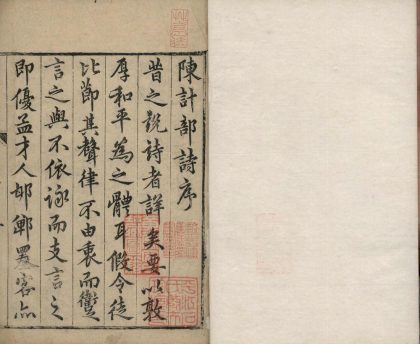 陳計部詩序
昔之說詩者詳矣要以敦
厚和平為之體耳假令徒
比節其聲律不由衷而衒
言之與不依詠而支言之
即優孟才人邯鄲客亦